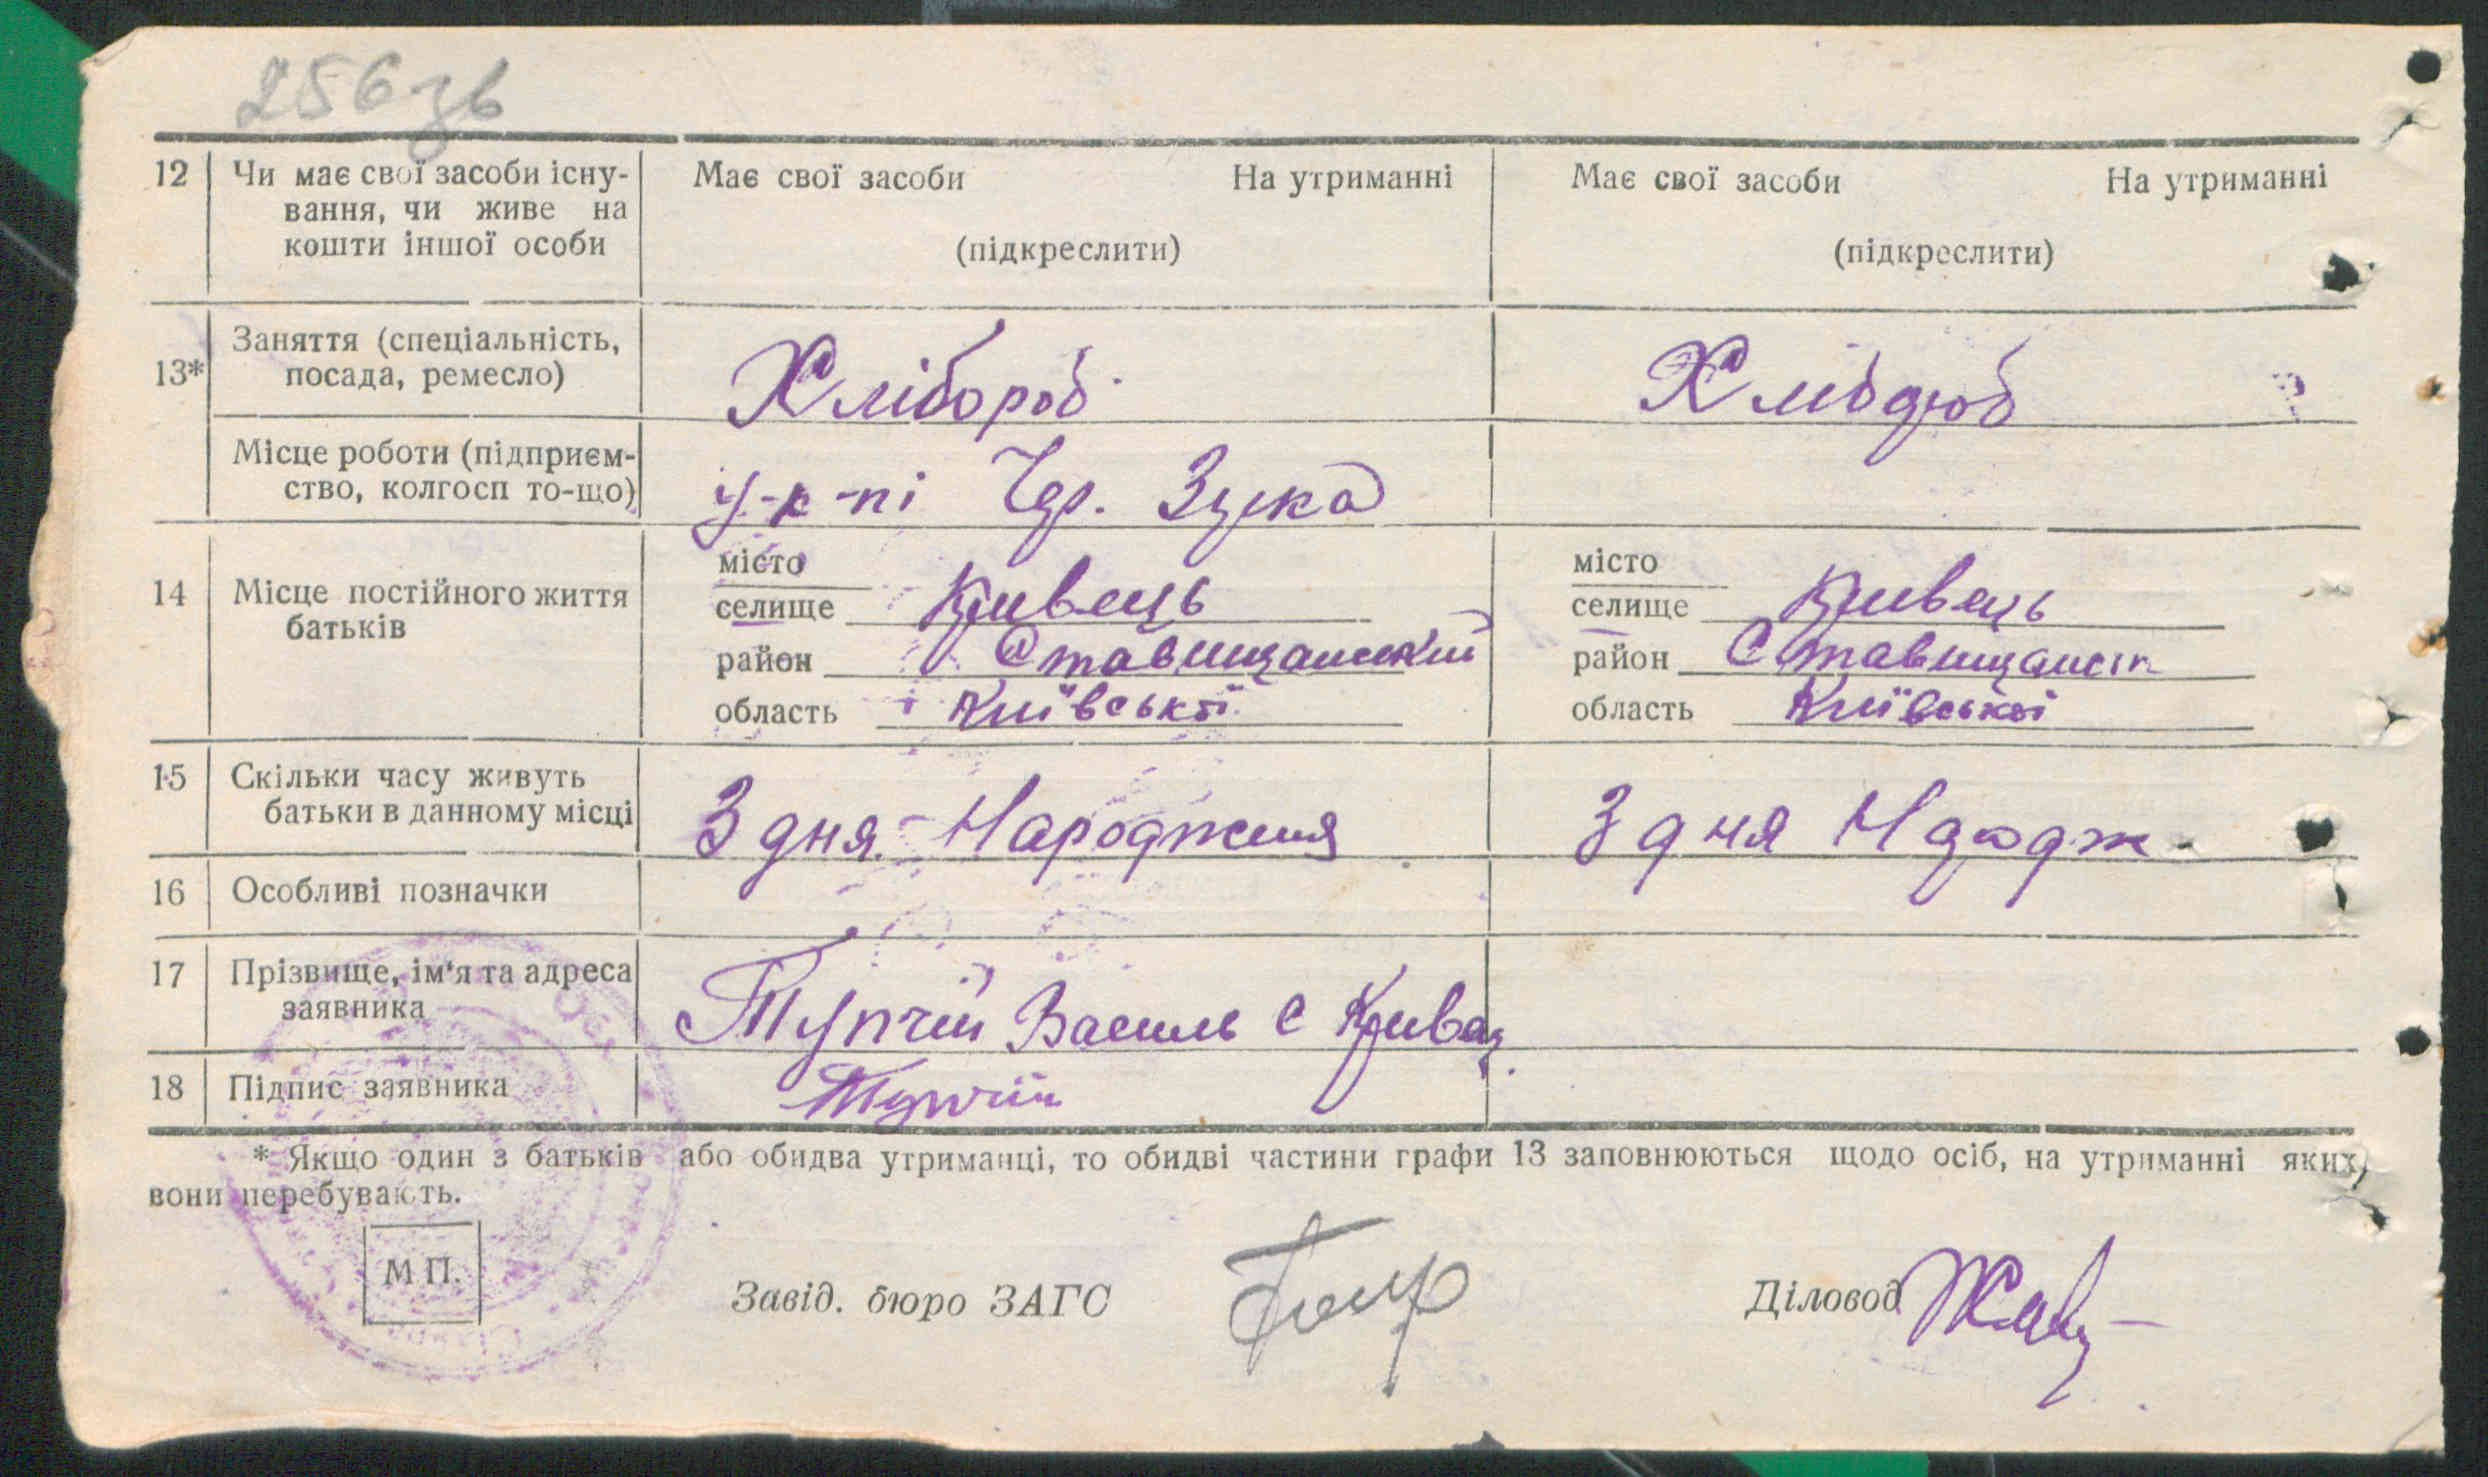 256 зв
12 Чи має свої засоби існу- Має свої засоби На утриманні Має свої засоби На утриманні
вання, чи живе на
кошти іншої особи (підкреслити) (підкреслити)
Заняття (спеціальність,
13* посада, ремесло) Хлібороб Хлібороб
Місце роботи (підприєм-
ство, колгосп то-що) у-к-пі
місто місто
14 Місце постійного життя селище Кривець селище Кривець
батьків район Ставищанський район Ставищанськ
область Київської область Київської
15 Скільки часу живуть
батьки в данному місці З дня Народження З дня Народж
16 Особливі позначки
17 Прізвище, ім'я та адреса
заявника Тупчій Василь с Кривец
18 Підпис заявника Тупчій
* Якщо один з батьків або обидва утриманці, то обидві частини графи 13 заповнюються щодо осіб, на утриманні яких
вони перебувають.
М П.
Завід. бюро ЗАГС Діловод